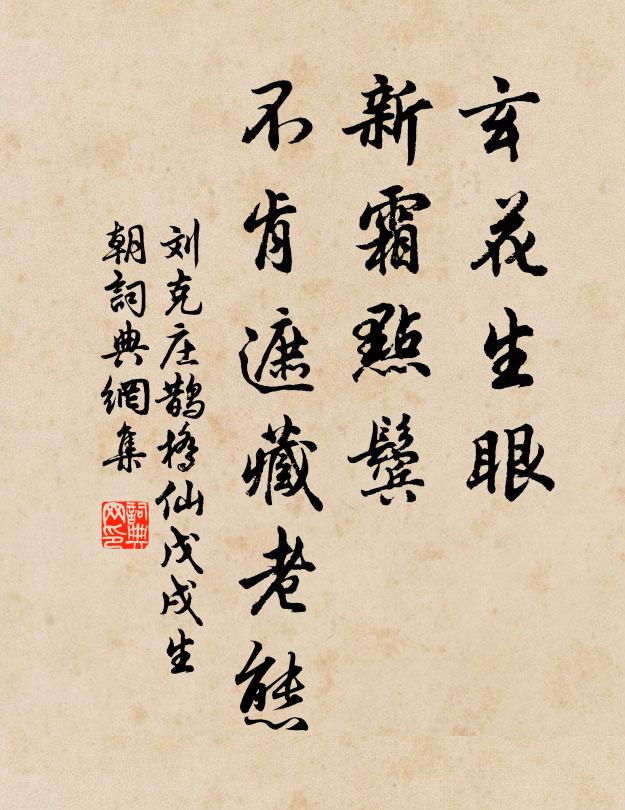 玄花生眼
新霜點鬓
不肯遮藏老態
刘克庄鹊橋仙戊戌生
朝詞典網集
詞典网印